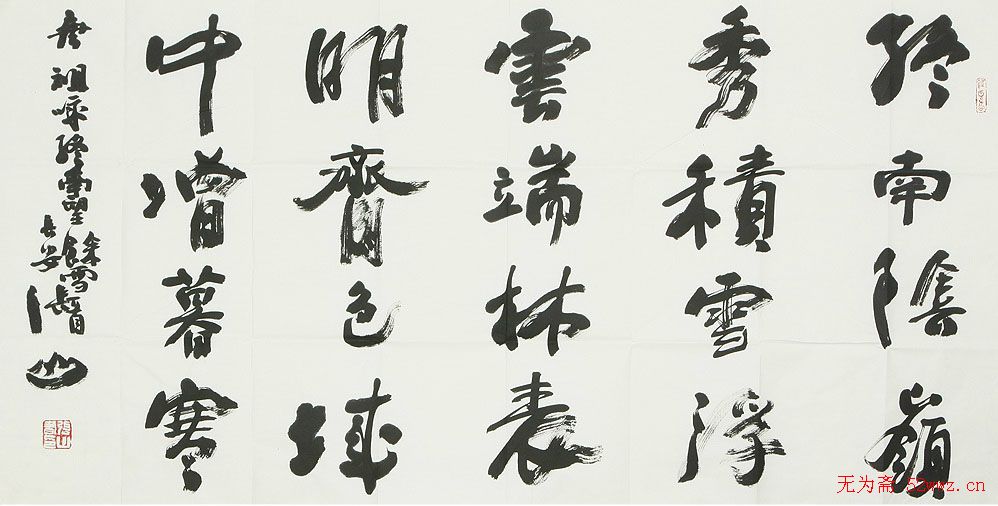 終南陰嶺
秀積雪浮
雲端林表
明齊色城
中增暮寒
唐祖咏終南望餘雪
長安
山
无为斋 52wwz.cn